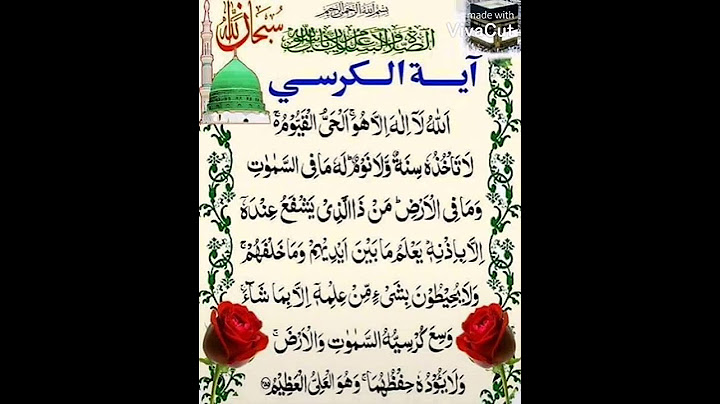 بسم الله الرحمن الرحيم
سبحان الله
made with
VivaCut
آية الكرسي
اَللّٰهُ لَاۤ اِلٰهَ اِلَّا هُوَ ۚ اَلْحَیُّ الْقَیُّوْمُ ۚ۬
لَا تَاْخُذُهٗ سِنَةٌ وَّلَا نَوْمٌ ؕ لَهٗ مَا فِی السَّمٰوٰتِ
وَمَا فِی الْاَرْضِ ؕ مَنْ ذَا الَّذِیْ یَشْفَعُ عِنْدَهٗۤ
اِلَّا بِاِذْنِهٖ ؕ یَعْلَمُ مَا بَیْنَ اَیْدِیْهِمْ وَمَا خَلْفَهُمْ ۚ
وَلَا یُحِیْطُوْنَ بِشَیْءٍ مِّنْ عِلْمِهٖۤ اِلَّا بِمَا شَآءَ ۚ
وَسِعَ كُرْسِیُّهُ السَّمٰوٰتِ وَالْاَرْضَ ۚ
وَلَا یَـُٔوْدُهٗ حِفْظُهُمَا ۚ وَهُوَ الْعَلِیُّ الْعَظِیْمُ